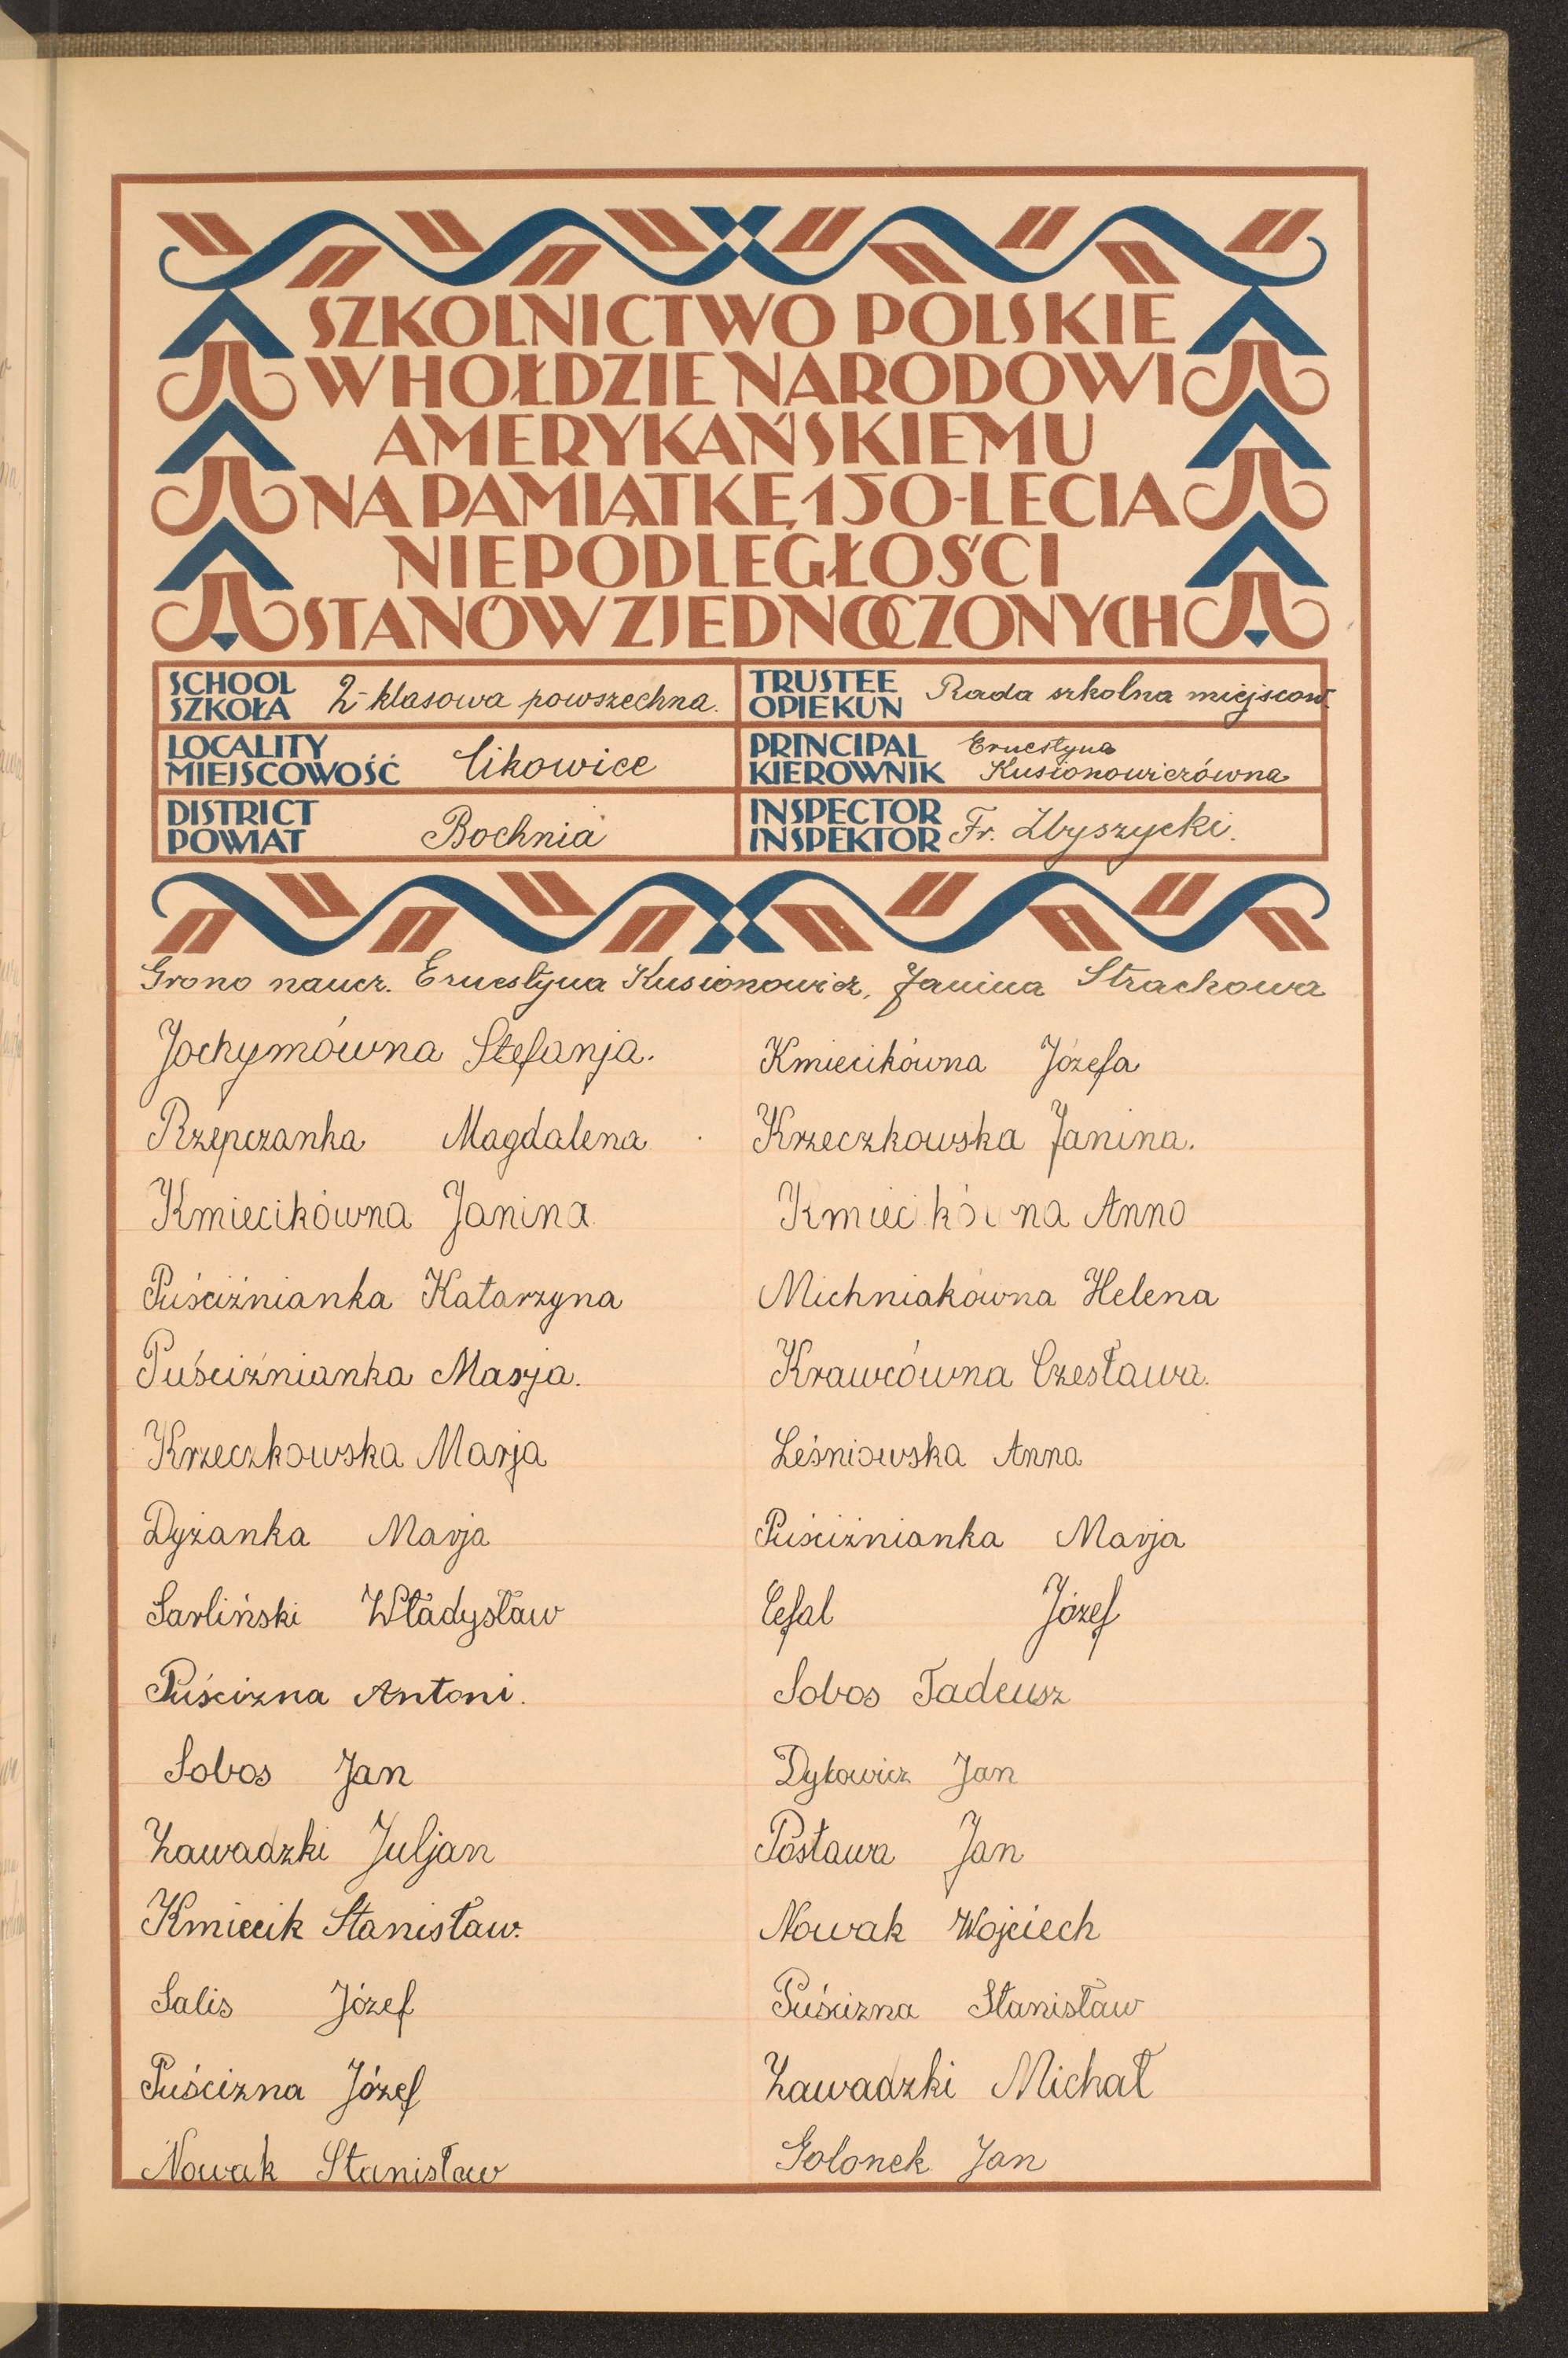 SZKOLNICTWO POLSKIE
W HOŁDZIE NARODOWI
AMERYKAŃSKIEMU
NA PAMIĄTKĘ 150-LECIA
NIEPODLEGŁOŚCI
STANÓW ZJEDNOCZONYCH
SCHOOL
SZKOŁA
2-klasowa powszechna.
TRUSTEE
OPIEKUN
Rada szkolna miejscow.
LOCALITY
MIEJSCOWOŚĆ
Cikowice
PRINCIPAL
KIEROWNIK
Ernestyna
Kusionowiczówna
DISTRICT
POWIAT
Bochnia
INSPECTOR
INSPEKTOR
Fr. Zbyszycki.
Grono naucz. Ernestyna Kusionowicz, Janina Strachowa
Jochymówna Stefanja.
Rzepczanka Magdalena
Kmiecikówna Janina
Puściźnianka Katarzyna
Puściźnianka Marja.
Krzeczkowska Marja
Dyżanka Marja
Sarliński Władysław
Puścizna Antoni.
Sobos Jan
Zawadzki Juljan
Kmiecik Stanisław.
Salis Józef
Puścizna Józef
Nowak Stanisław
Kmiecikówna Józefa
Krzeczkowska Janina.
Kmiecikówna Anna
Michniakówna Helena
Krawcówna Czesława.
Leśniowska Anna
Puściźnianka Marja
Cefal Józef
Sobos Tadeusz
Dytowicz Jan
Postawa Jan
Nowak Wojciech
Puścizna Stanisław
Zawadzki Michał
Golonek Jan